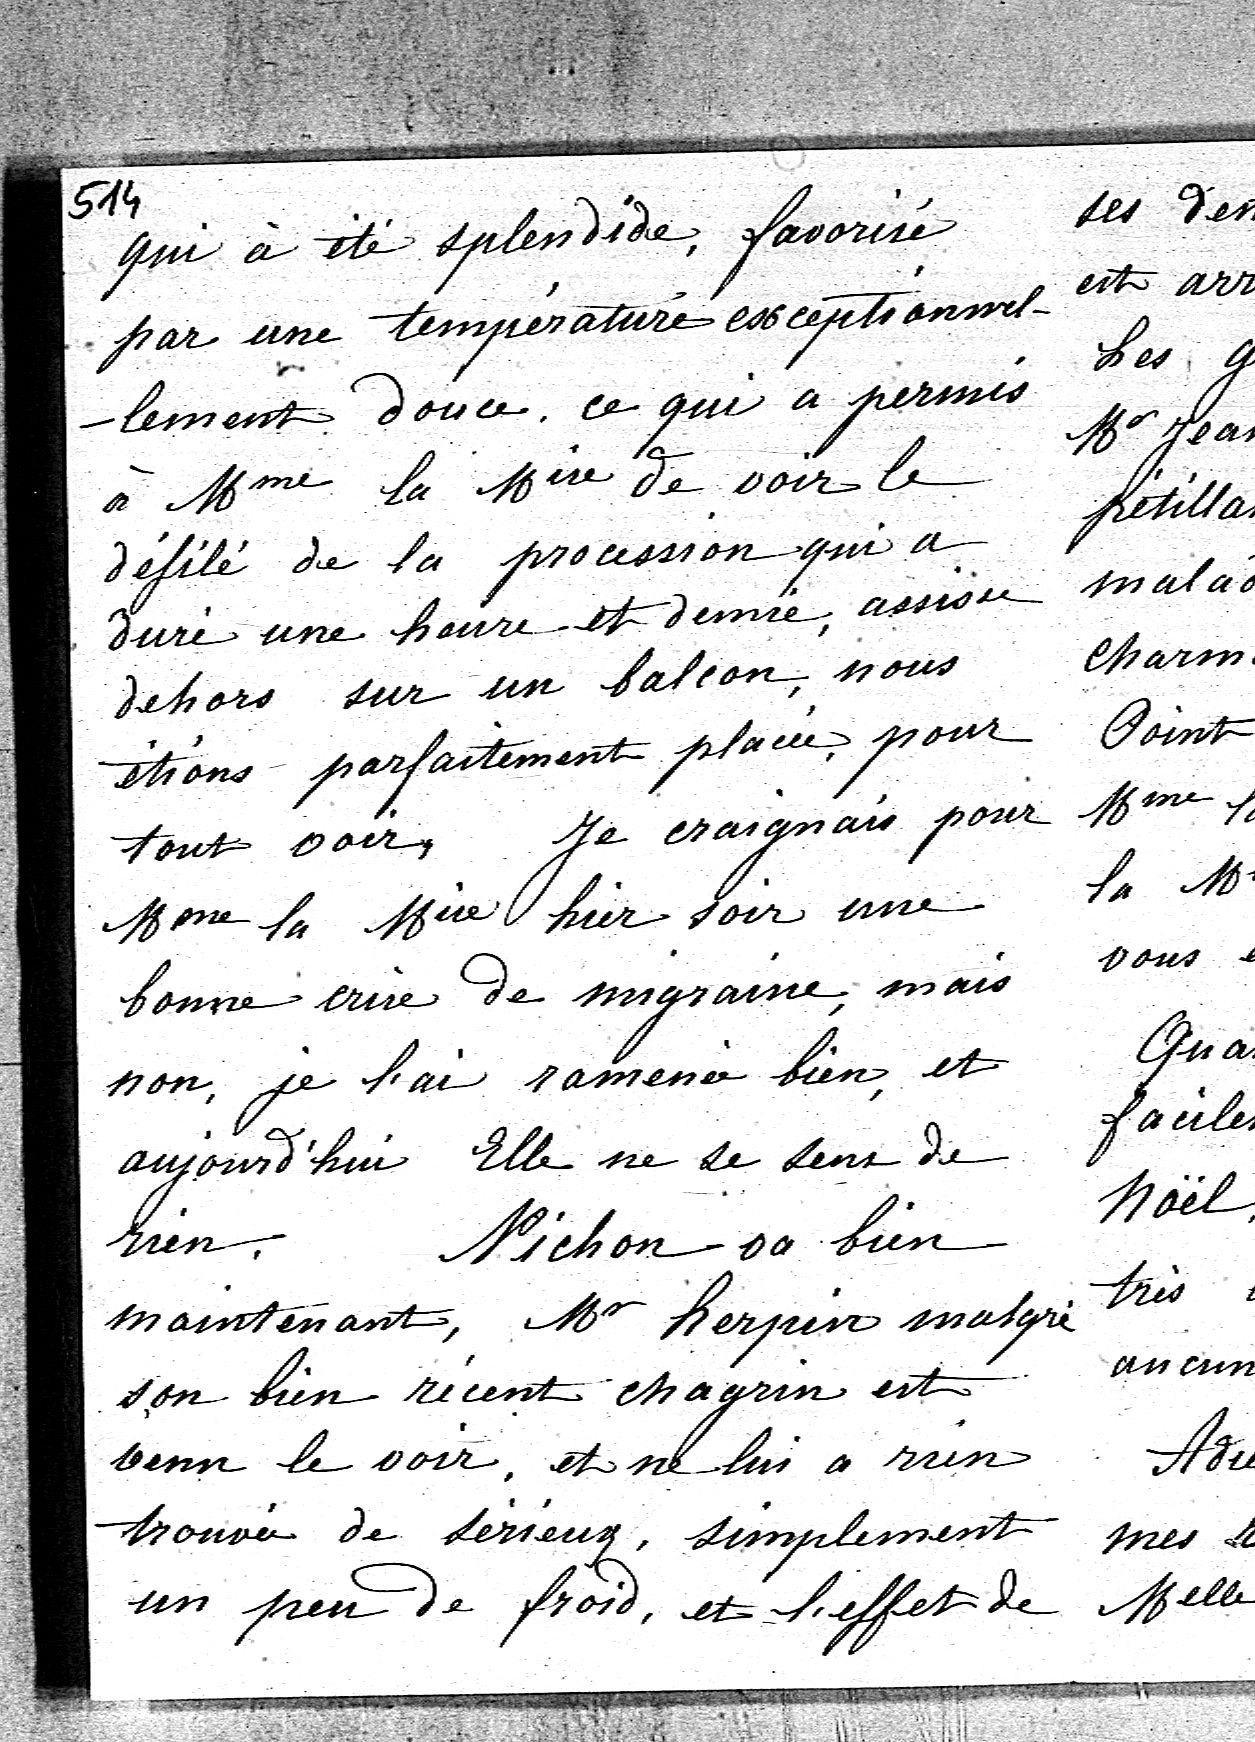 514
qui à été splendide, favorisé
par une température exceptionnel-
-lement douce. ce qui a permis
à Mme la Mise de voir le
défilé de la procession qui a
duré une heure et demie, assise
dehors sur un balcon, nous
étions parfaitement placée, pour
tout voir, Je craignais pour
Mme la Mise hier soir une
bonne crise de migraine, mais
non, je l'ai ramenée bien, et
aujourd'hui Elle ne se sens de
rien. Nichon va bien
maintenant, Mr herpin malgré
son bien récent chagrin est
venu le voir, et ne lui a rien
trouvée de sérieux, simplement
un peu de froid, et l'effet de
ses den
est arr
Les g
Mr Jean
pétillan
malad
charm
Point
Mme la
la M
vous e
Quan
facilem
Nöël,
très
aucun
Adie
mes re
Melle